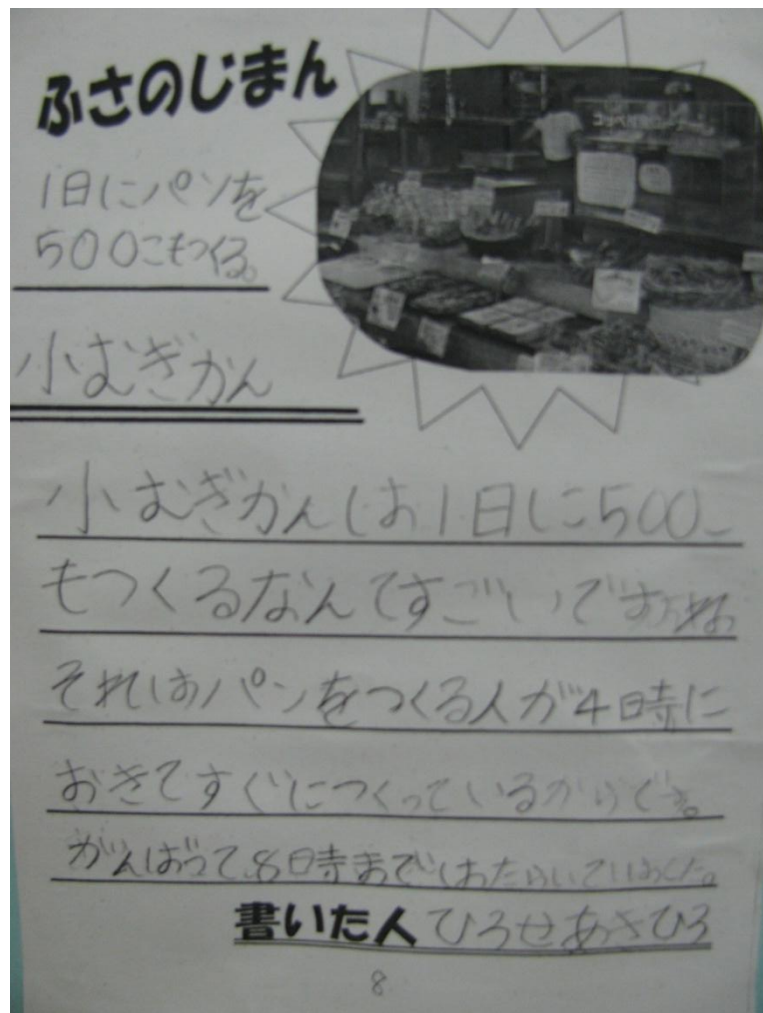 ふさのじまん
1日にパンを
500こもつくる。
小むぎかん
小むぎかんは1日に500こ
もつくるなんてすごいですよね
それはパンをつくる人が4時に
おきてすぐにつくっているからです。
がんばって8時まではたらいて
書いた人 ひろせあさひろ
8